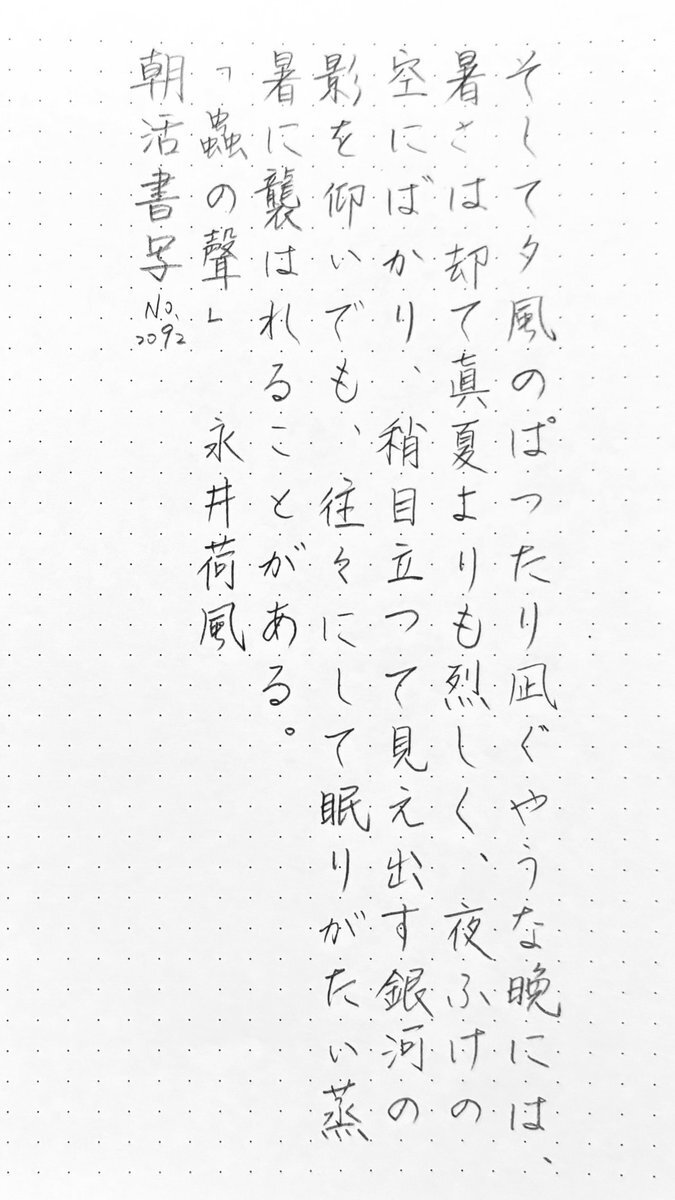 そして夕風のぱつたり凪ぐやうな晩には、
暑さは却て真夏よりも烈しく、夜ふけの
空にばかり、稍目立つて見え出す銀河の
影を仰いでも、往々にして眠りがたい蒸
暑に襲はれることがある。
「蟲の聲」 永井荷風
朝活書写 No.2092